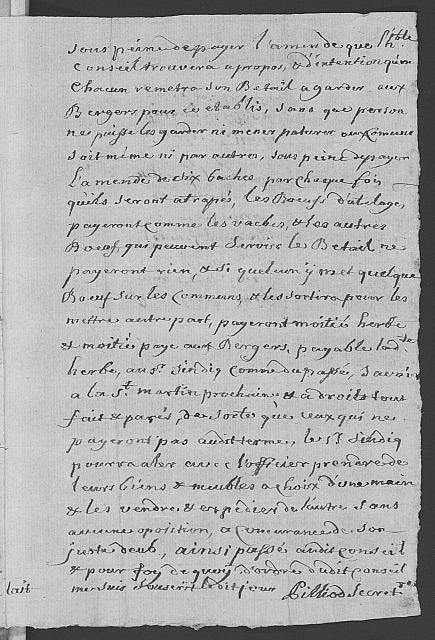 sous peine de payer l'amende que l'h.ble
Conseil trouvera a propos, & d'intention qu'un
chacun remetra son Betail a garder aux
Bergers pour ce etablis, sans que person
ne puisse les garder ni mener paturer aux comuns
soit même ni par autres, sous peine de payer
L'amende de dix baches par chaque fois
qu'ils seront atrapés, les Boeufs d'atelage,
payeront comme les vaches, & les autres
Boeufs, qui peuvent servir le Betail ne
payeront rien, & si quelqu'un y met quelque
Boeuf sur les communs, & les sortira pour les
mettre autre part, payeront moitié herbe
& moitié paye aux Bergers, payable lad.te
herbe, au s.r sindiq comme du passé, savoir
a la S.t martin prochaine & a droits tout
fait & parés, de sorte que ceux qui ne
payeront pas audit terme, le S.r sindiq
pourra aler avec l'officier prendre de
leurs biens & meubles a choix d'une main
& les vendre & expedier de l'autre sans
aucune oposition, a concurrance de son
juste deub, ainsi passés audit conseil
& pour foy de quoy d'ordre dudit conseil
me suis soussigné ledit jour Pilliod Secret.re
lait